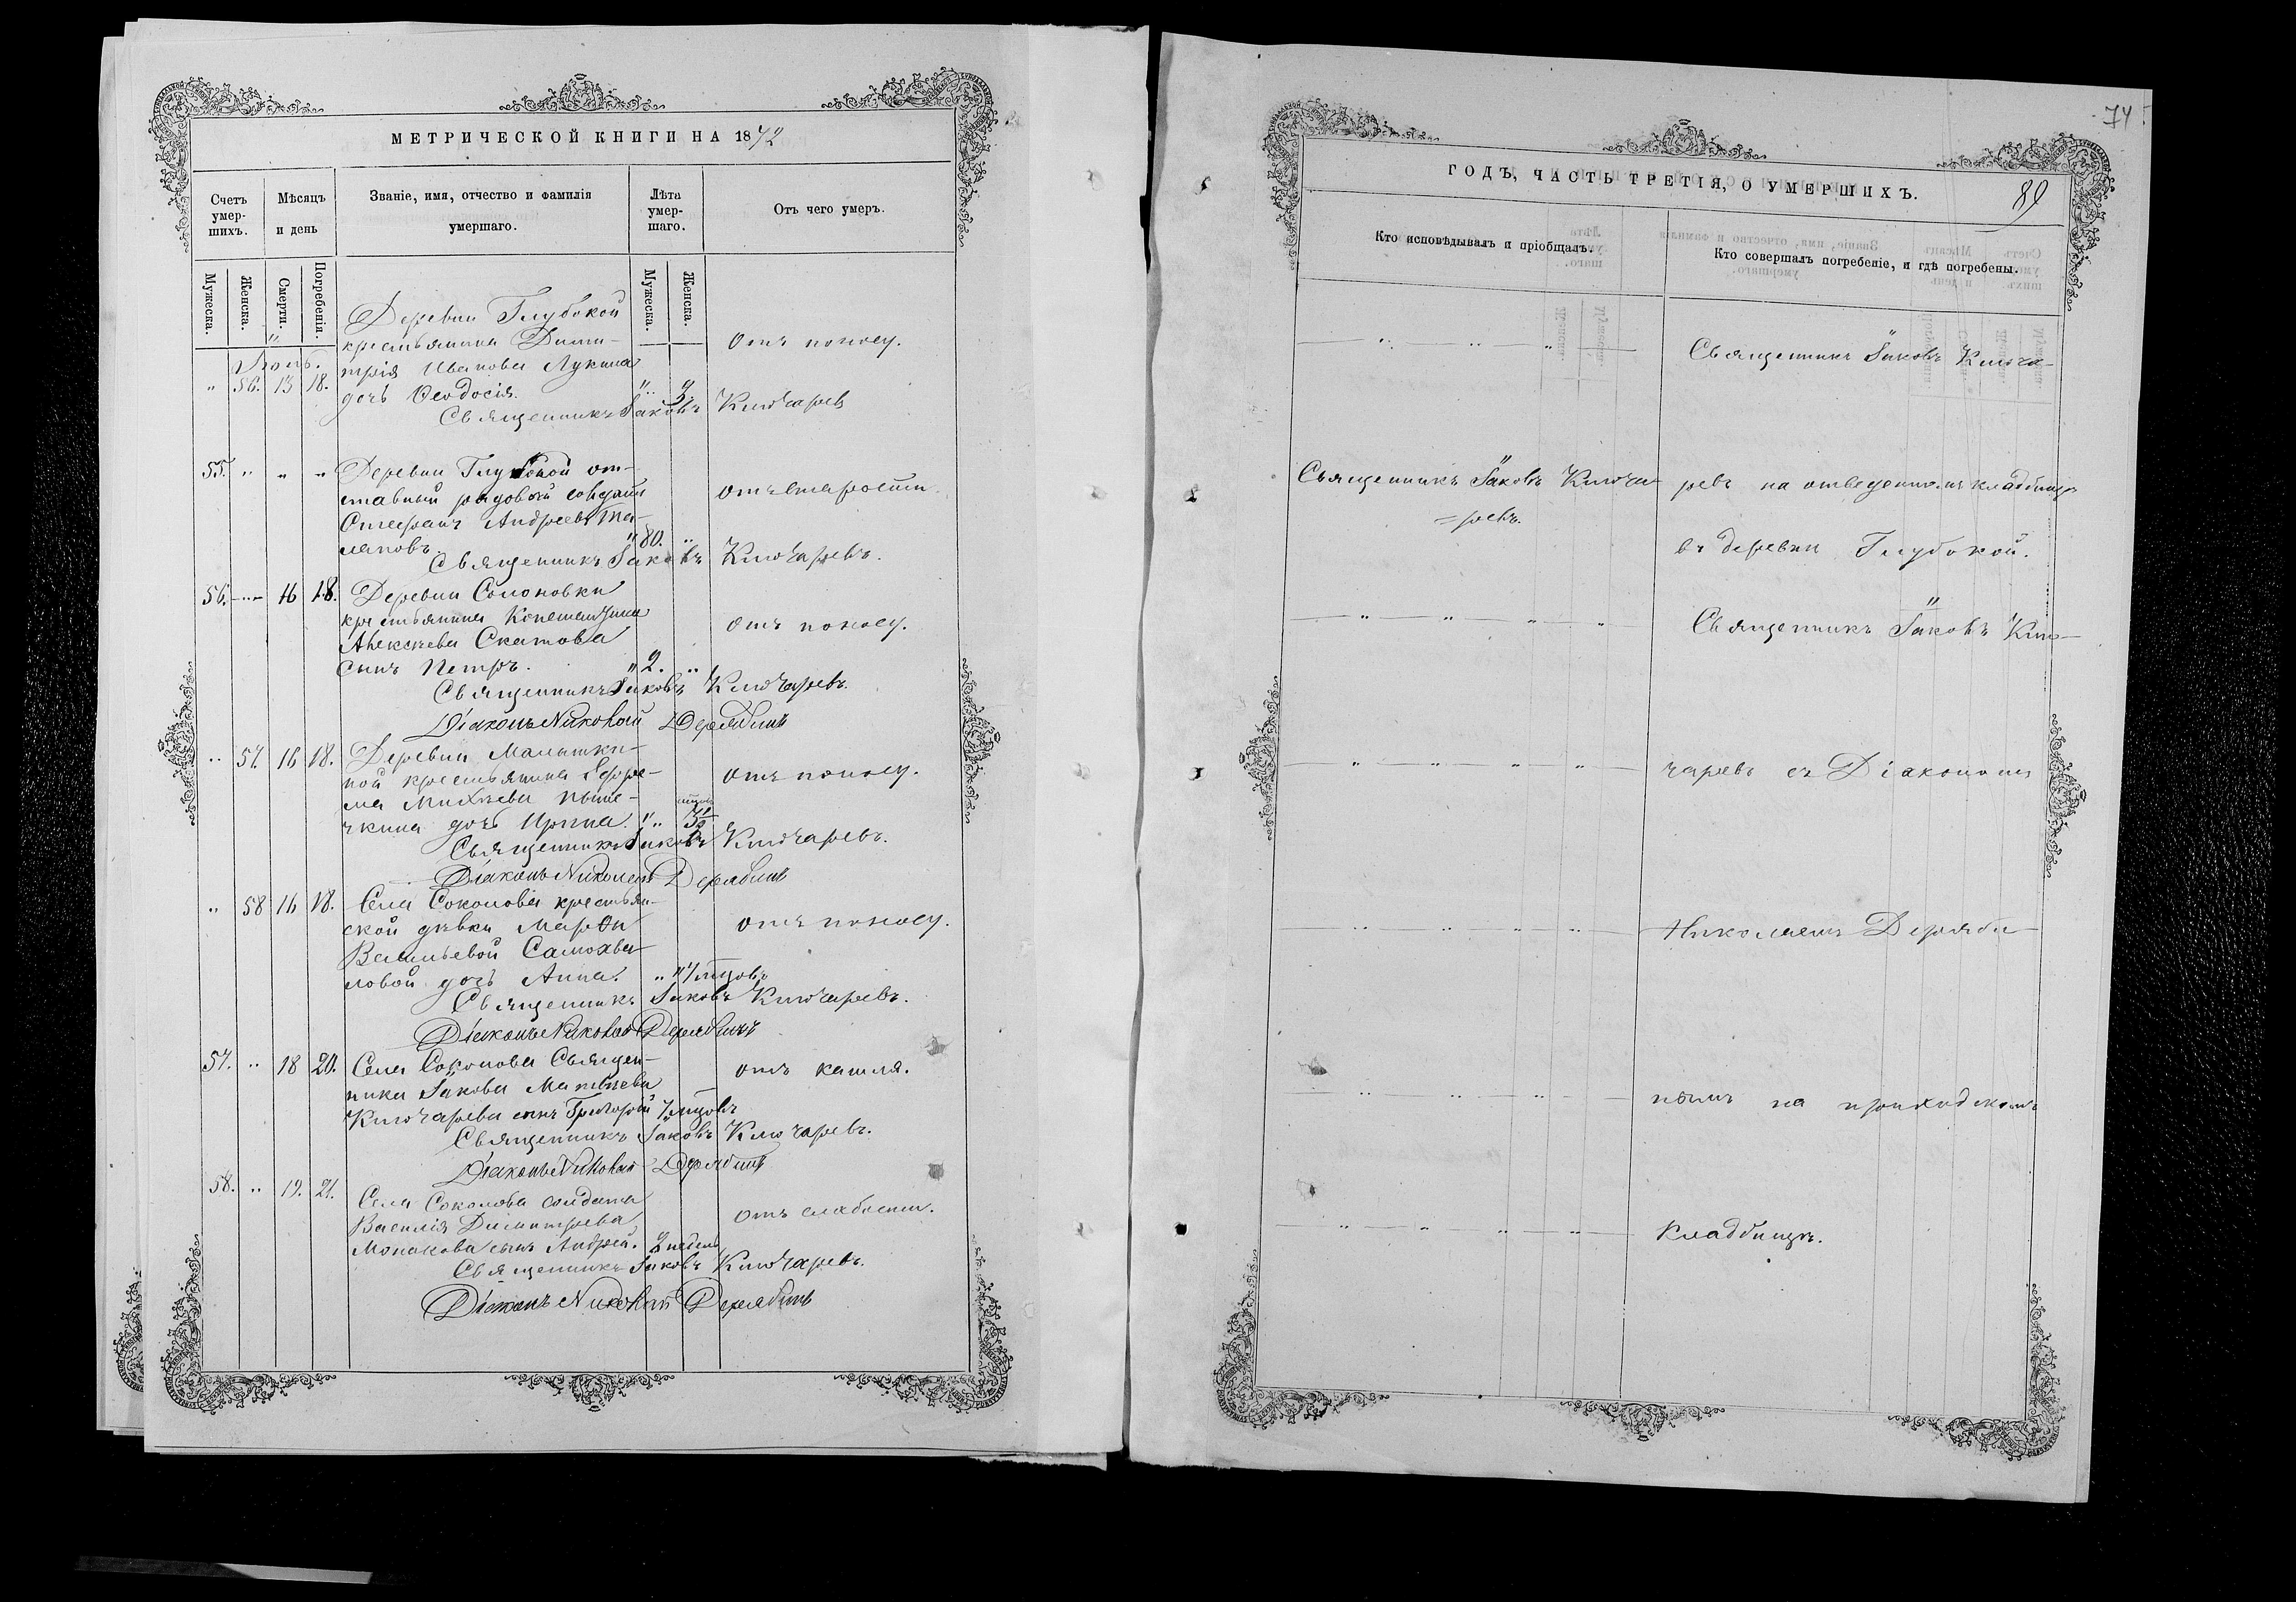 МЕТРИЧЕСКОЙ КНИГИ НА 1872
Счетъ умер-шихъ.
Мѣсяцъ и день
Званіе, имя, отчество и фамилія умершаго.
Лѣта умер-шаго.
Отъ чего умеръ.
Мужеска. Женска. Смерти. Погребенія. Мужеска. Женска.
Іюль.
" 56. 13 18.
Деревни Глубокой
крестьянина Дими-
трія Иванова Лукина
дочь Ѳеодосія.
отъ поносу.
Священникъ Іаковъ Ключарев
55. " " "
Деревни Глубокой от-
ставный рядовой солдатъ
Стефанъ Андреевъ Та-
лановъ. " 80. "
отъ старости.
Священникъ Іаковъ Ключаревъ.
56. " 16 18.
Деревни Соколовки
крестьянина Константина
Алексѣева Скатова
сынъ Петръ. " 2. "
отъ поносу.
Священникъ Іаковъ Ключаревъ.
Діаконъ Николай Дерябинъ
" 57. 16 18.
Деревни Малышки-
ной крестьянина Ефре-
ма Михѣева Пыше-
чкина дочь Ирина. "
отъ поносу.
Священникъ Іаковъ Ключаревъ.
Діаконъ Николай Дерябинъ
" 58 16 18.
Села Соколова крестьян-
ской дѣвки Марѳы
Васильевой Самохва-
ловой дочь Анна.
отъ поносу.
Священникъ Іаковъ Ключаревъ.
Діаконъ Николай Дерябинъ
57. " 18 20.
Села Соколова Священ-
ника Іакова Матвѣева
Ключарева сынъ Григорій 7 мѣсцовъ
отъ кашля.
Священникъ Іаковъ Ключаревъ.
Діаконъ Николай Дерябинъ
58. " 19. 21.
Села Соколова солдата
Василія Димитріева
Монакова сынъ Андрей. 2 недель
отъ слабости.
Священникъ Іаковъ Ключаревъ.
Діаконъ Николай Дерябинъ
74
89
ГОДЪ, ЧАСТЬ ТРЕТІЯ, О УМЕРШИХЪ.
Кто исповѣдывалъ и пріобщалъ.
Кто совершалъ погребеніе, и гдѣ погребены.
Священникъ Іаковъ Ключа-
Священникъ Іаковъ Ключа ревъ на отведенномъ кладбищѣ
=ревъ.
въ деревни Глубокой.
Священникъ Іаковъ Клю-
чаревъ съ Діакономъ
Николаемъ Деряби-
нымъ на приходскомъ
Кладбищѣ.